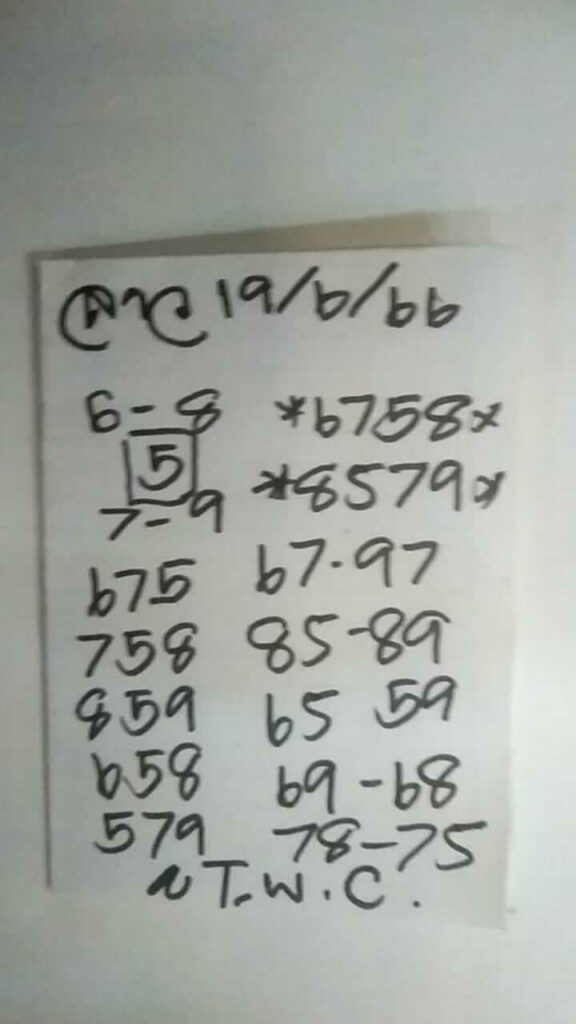 ลาว 19/6/66
6-8 *6758*
5
7-9 *8579*
675 67.97
758 85-89
859 65 59
658 69-68
579 78-75
~T.W.C.